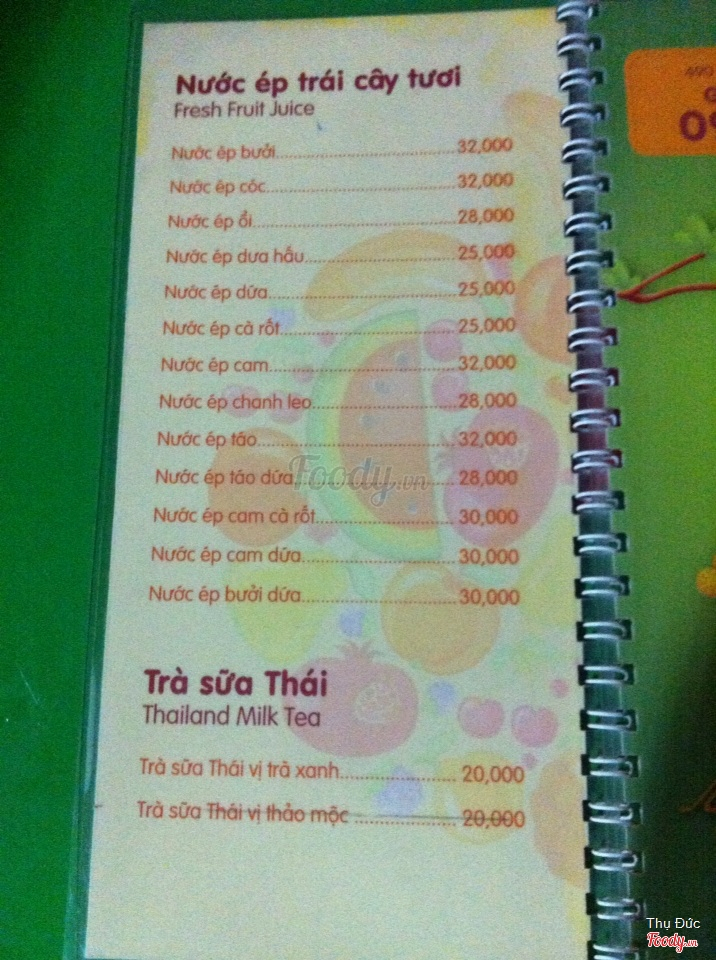 Nước ép trái cây tươi
Fresh Fruit Juice
Nước ép bưởi 32,000
Nước ép cóc 32,000
Nước ép ổi 28,000
Nước ép dưa hấu 25,000
Nước ép dứa 25,000
Nước ép cà rốt 25,000
Nước ép cam 32,000
Nước ép chanh leo 28,000
Nước ép táo 32,000
Nước ép táo dứa 28,000
Nước ép cam cà rốt 30,000
Nước ép cam dứa 30,000
Nước ép bưởi dứa 30,000
Trà sữa Thái
Thailand Milk Tea
Trà sữa Thái vị trà xanh 20,000
Trà sữa Thái vị thảo mộc 20,000
Foody.vn
Thụ Đức
Foody.vn